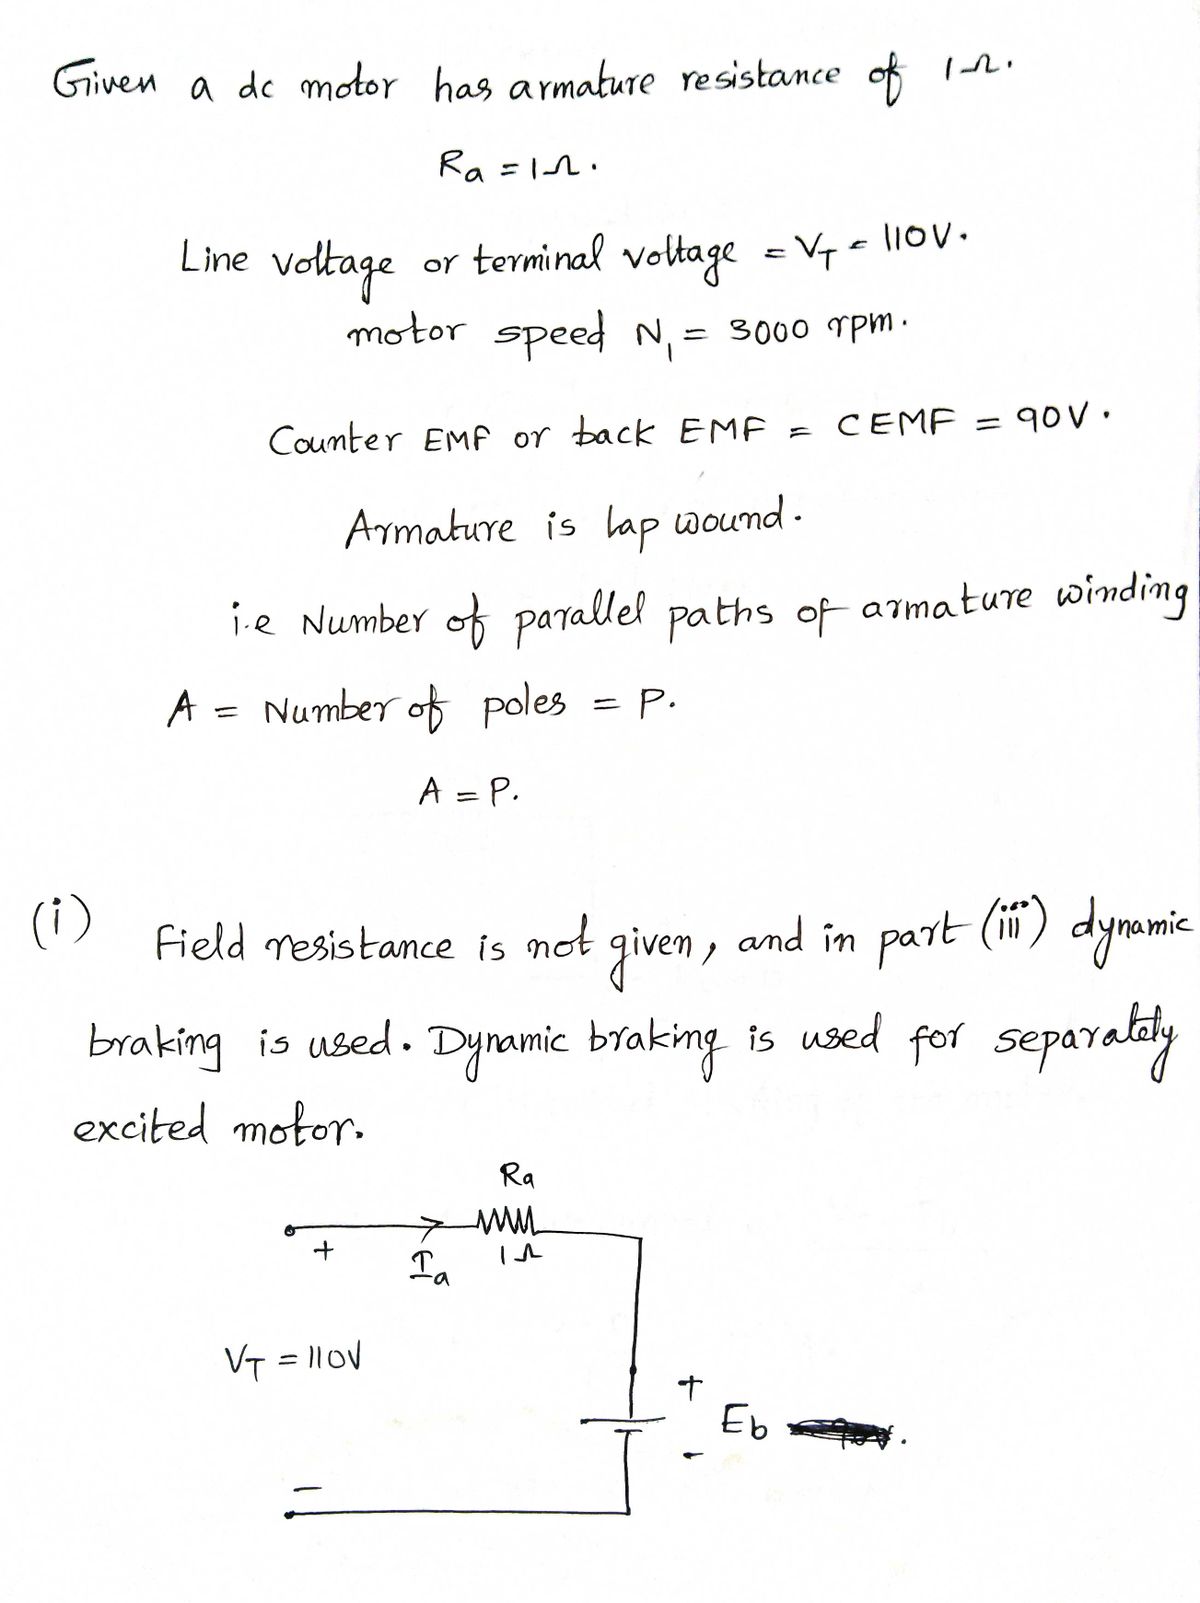 Given a dc motor has armature resistance of 1Ω.
Ra = 1Ω.
Line voltage or terminal voltage = VT = 110V.
motor speed N1 = 3000 rpm.
Counter EMF or back EMF = CEMF = 90V.
Armature is lap wound.
i.e Number of parallel paths of armature winding
A = Number of poles = P.
A = P.
(i) Field resistance is not given, and in part (iii) dynamic
braking is used. Dynamic braking is used for separately
excited motor.
Ra
+ Ia 1Ω
VT = 110V
+
Eb .
-
-